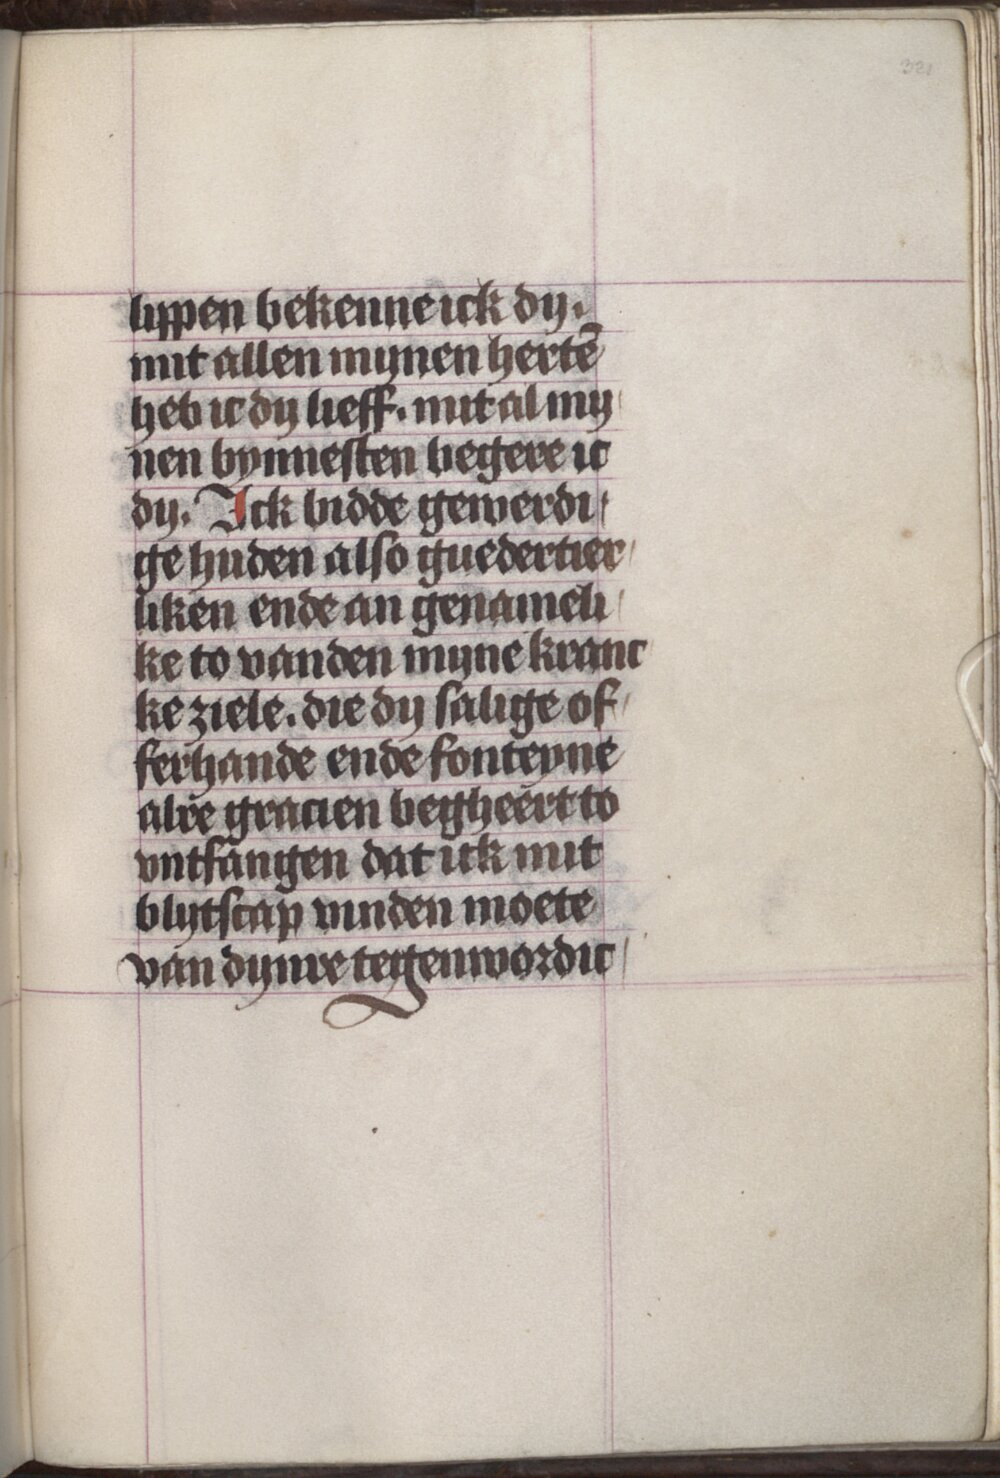 321
lyppen bekenne ick dy.
mit allen mynen hertē
heb ic dy lieff. mit al my
nen bynnesten begere ic
dy. Ick bidde gewerdi
ge huden also guedertier
liken ende an genameli
ke to vanden myne kranc
ke ziele. die dy salige of
ferhande ende fonteyne
alre gracien begheert to
vntfangen dat ick mit
blytscap vinden moete
van dynre tegenwordic